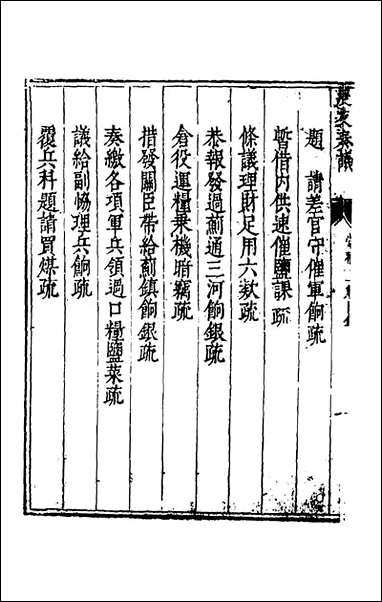 題　請差官守催軍餉疏
暫借內供速催鹽課疏
條議理財足用六欵疏
恭報發過薊通三河餉銀疏
倉役運糧乗機暗竊疏
措發關臣帶給薊鎮餉銀疏
奏繳各項軍兵領過口糧鹽菜疏
議給副協理兵餉疏
覆兵科題請買煤疏